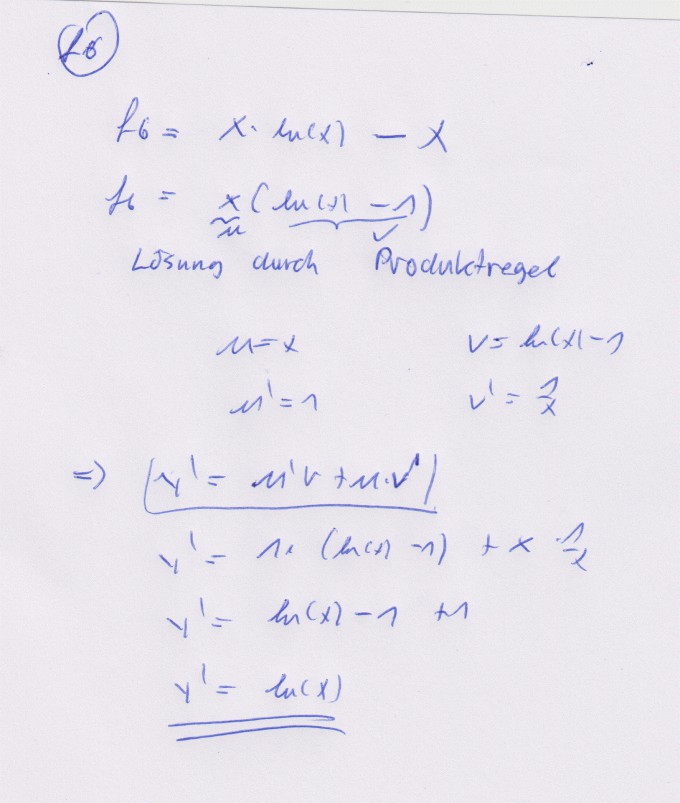 f6
f6 = x · ln(x) − x
f6 = x (ln(x) − 1)
u v
Lösung durch Produktregel
u = x v = ln(x) − 1
u' = 1 v' = 1/x
=> (y' = u'v + u·v')
y' = 1· (ln(x) − 1) + x · 1/x
y' = ln(x) − 1 + 1
y' = ln(x)